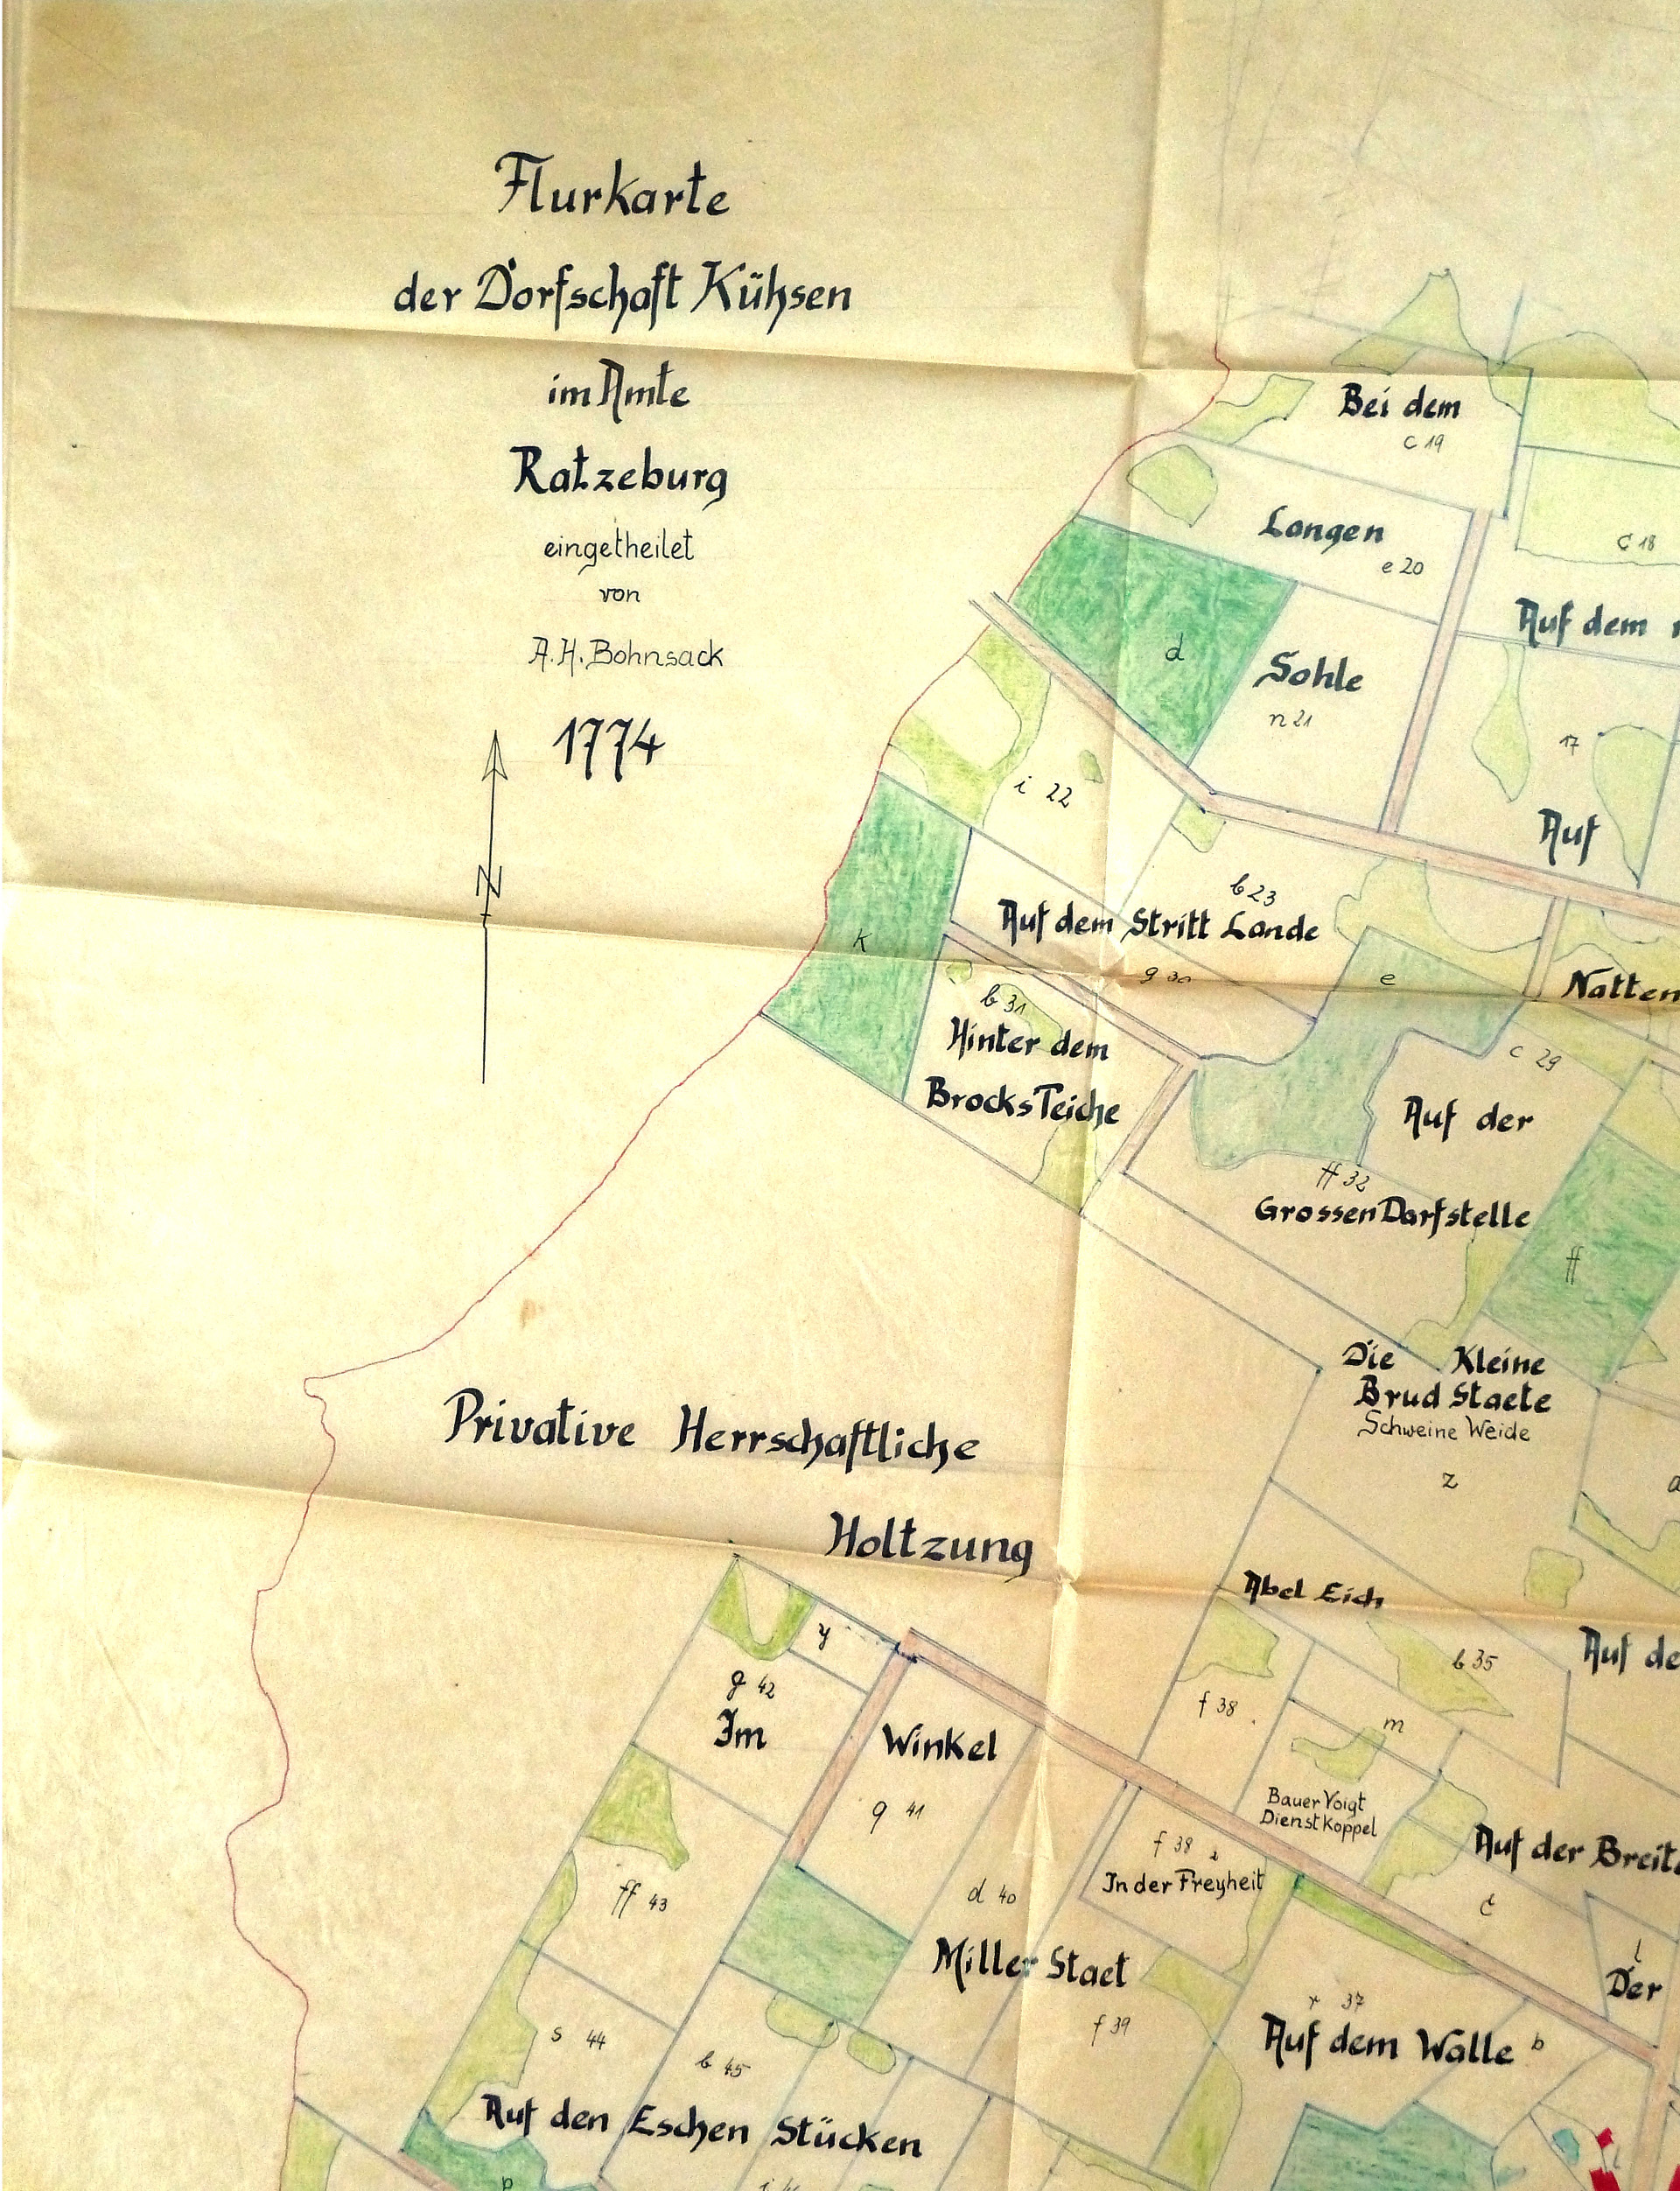 Flurkarte
der Dorfschaft Kühsen
im Amte
Ratzeburg
eingetheilet
von
A.H. Bohnsack
1774
N
Bei dem
c 19
Langen
e 20
c 18
Auf dem
d
Sohle
n 21
17
Auf
i 22
b 23
Auf dem Stritt Lande
k
g 30
e
Natten
b 31
Hinter dem
Brocks Teiche
c 29
Auf der
ff 32
Grossen Dorfstelle
ff
Die Kleine
Brud Staete
Schweine Weide
z
Privative Herrschaftliche
Holtzung
Abel Eich
y
b 35
Auf de
g 42
f 38
m
Im
Winkel
q 41
Bauer Voigt
Dienst Koppel
f 38
Auf der Breite
In der Freyheit
ff 43
d 40
c
l
Der
Miller Staet
r 37
f 39
Auf dem Walle
b
s 44
b 45
Auf den Eschen Stücken
p